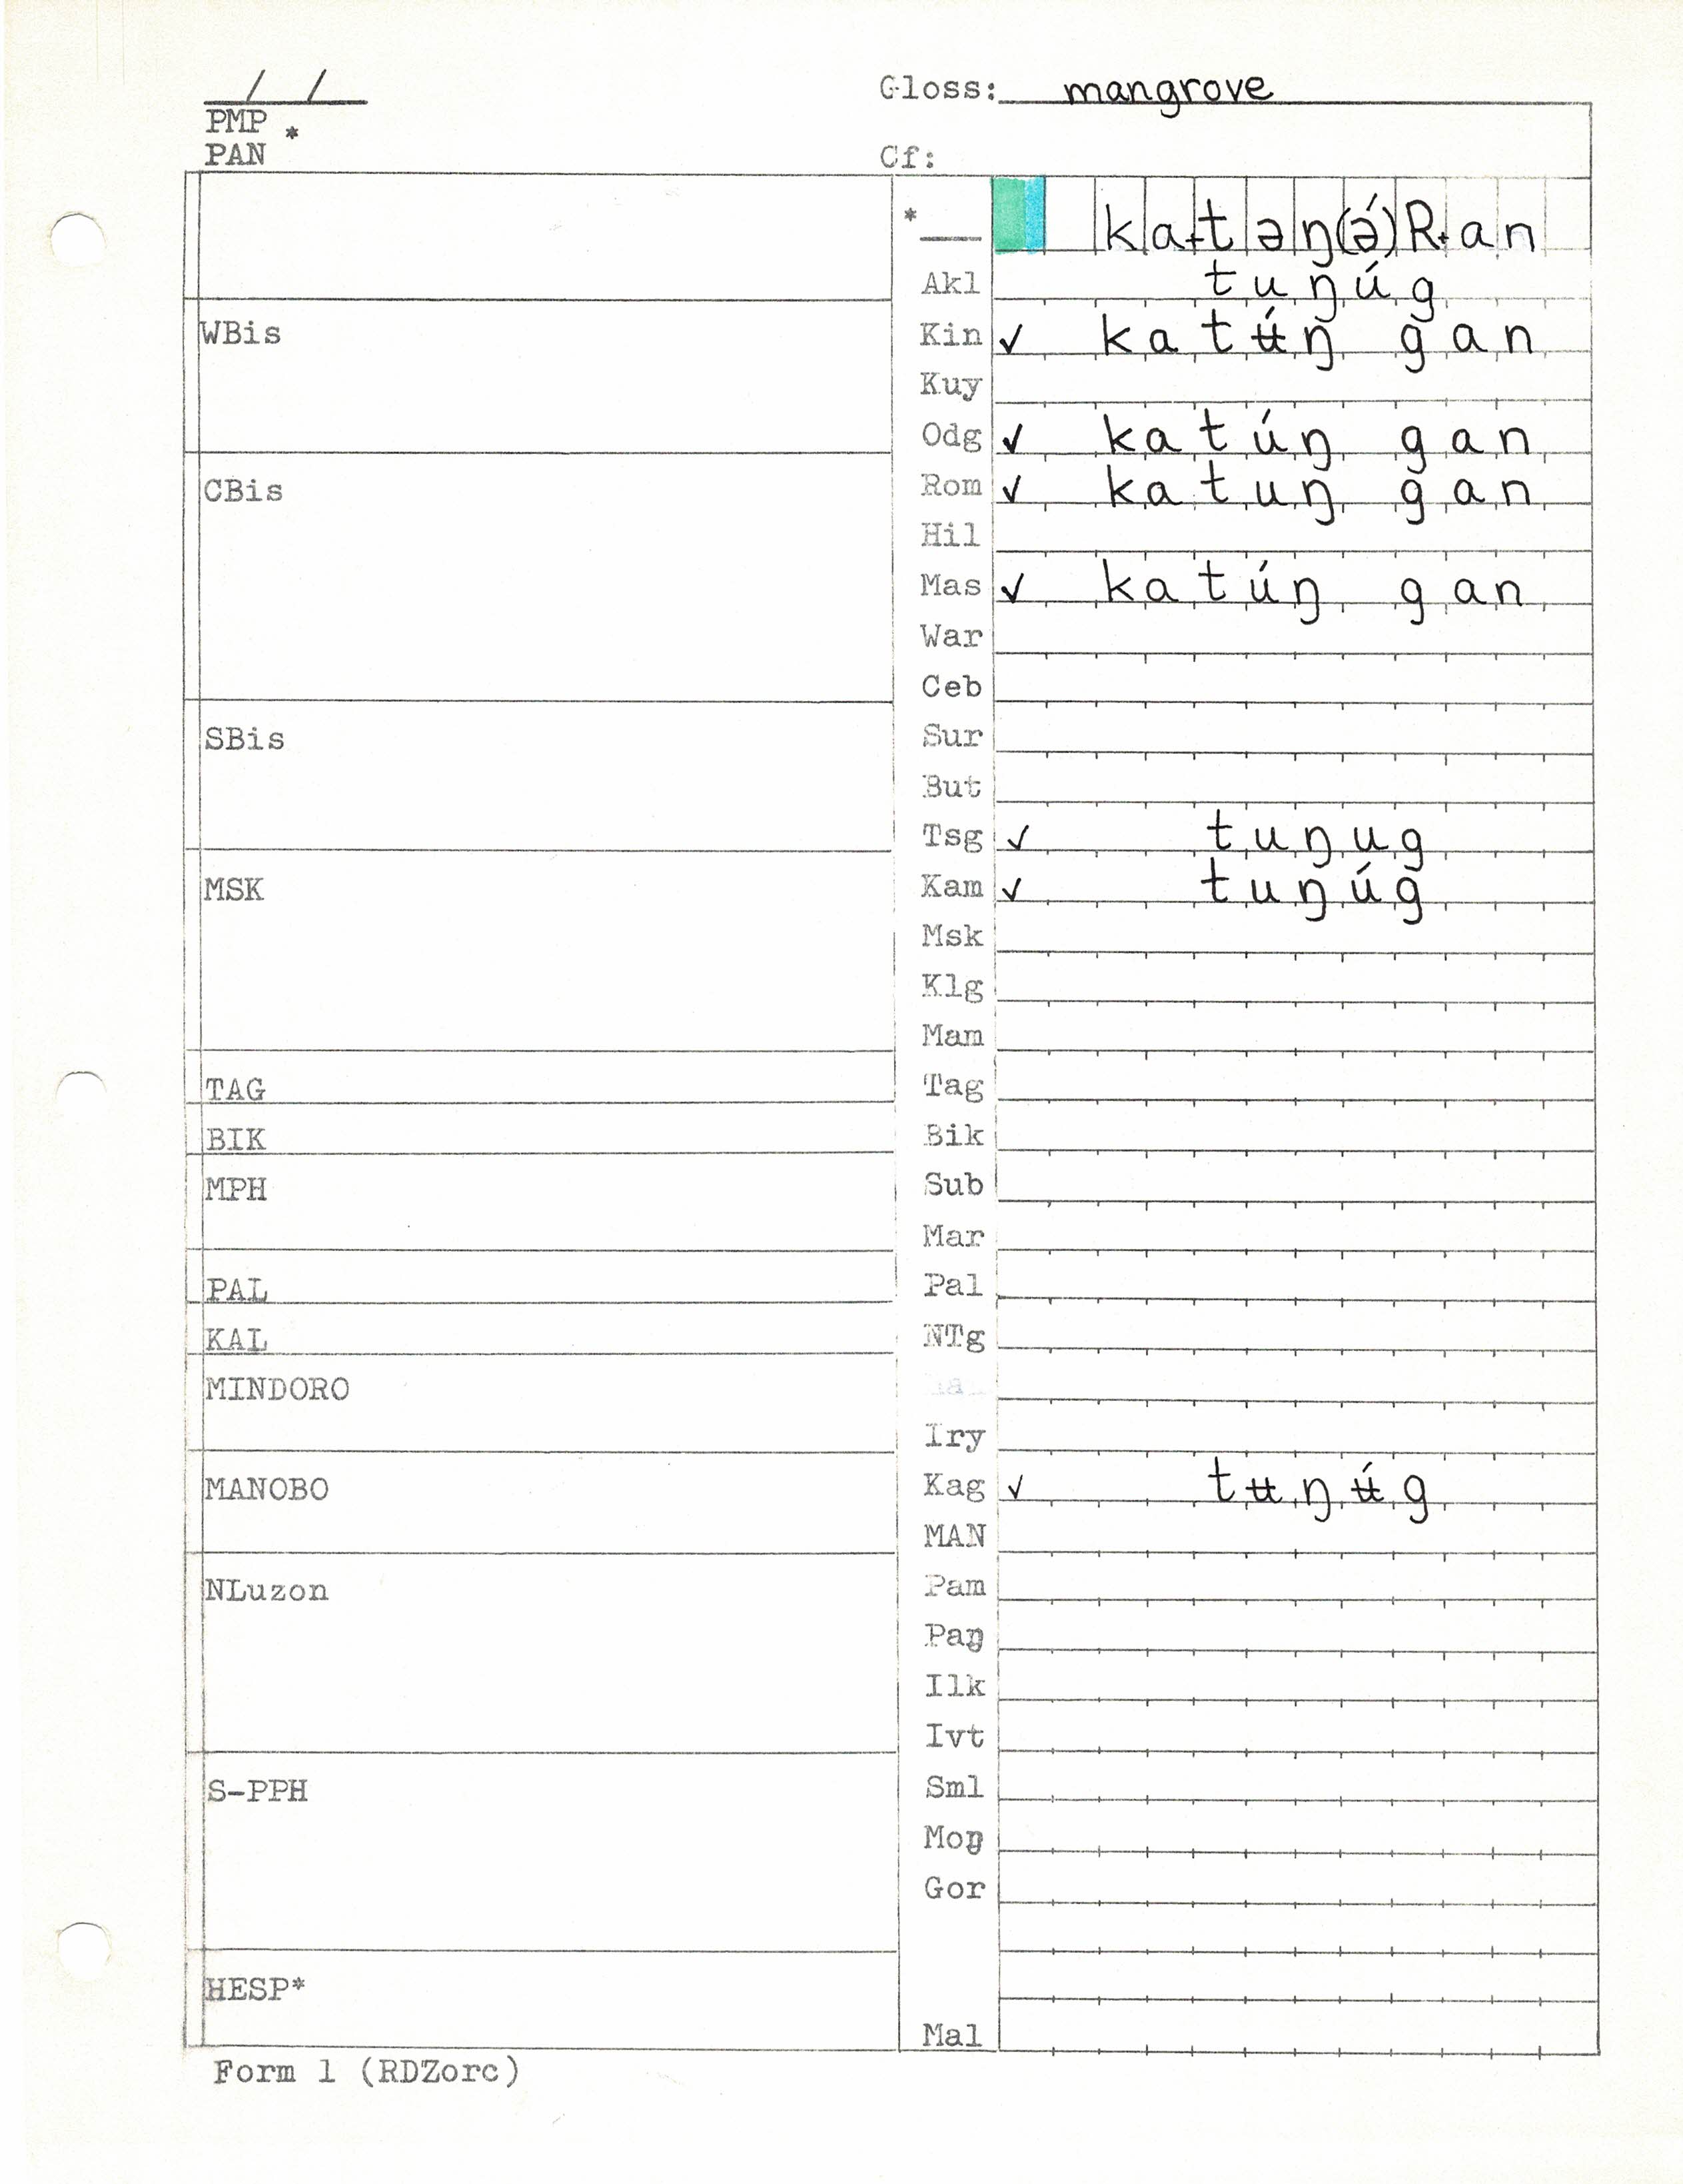 / /
Gloss: mangrove
PMP *
PAN
Cf:
*___ ka+təŋ(ə́)R+an
Akl tuŋúg
WBis
Kin ✓ katʉ́ŋgan
Kuy
Odg ✓ katúŋgan
CBis
Rom ✓ katuŋgan
Hil
Mas ✓ katúŋgan
War
Ceb
SBis
Sur
But
Tsg ✓ tuŋug
MSK
Kam ✓ tuŋúg
Msk
Klg
Mam
TAG
Tag
BIK
Bik
MPH
Sub
Mar
PAL
Pal
KAL
NTg
MINDORO
Iry
MANOBO
Kag ✓ tʉŋʉ́g
MAN
NLuzon
Pam
Paŋ
Ilk
Ivt
S-PPH
Sml
Moŋ
Gor
HESP*
Mal
Form 1 (RDZorc)